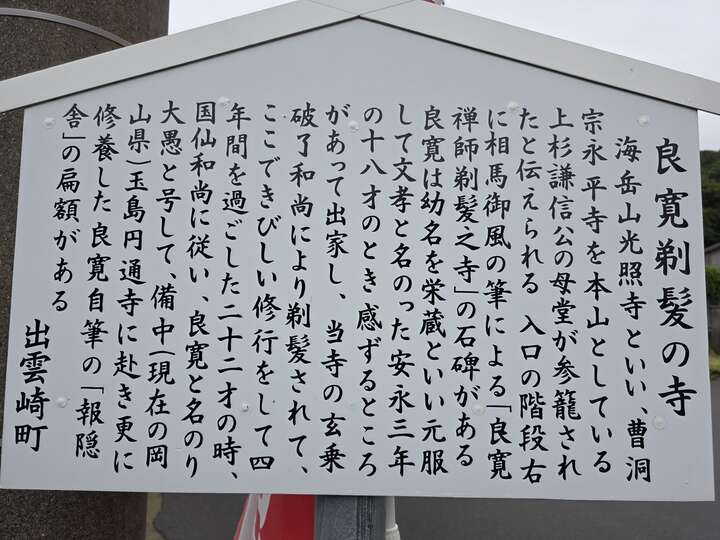 良寛剃髪の寺
海岳山光照寺といい、曹洞
宗永平寺を本山としている
上杉謙信公の母堂が参籠され
たと伝えられる 入口の階段右
に相馬御風の筆による「良寛
禅師剃髪之寺」の石碑がある
良寛は幼名を栄蔵といい元服
して文孝と名のった安永三年
の十八才のとき感ずるところ
があって出家し、当寺の玄乗
破了和尚により剃髪されて、
ここできびしい修行をして四
年間を過ごした二十二才の時、
国仙和尚に従い、良寛と名のり
大愚と号して、備中(現在の岡
山県)玉島円通寺に赴き更に
修養した良寛自筆の「報隠
舎」の扁額がある
出雲崎町